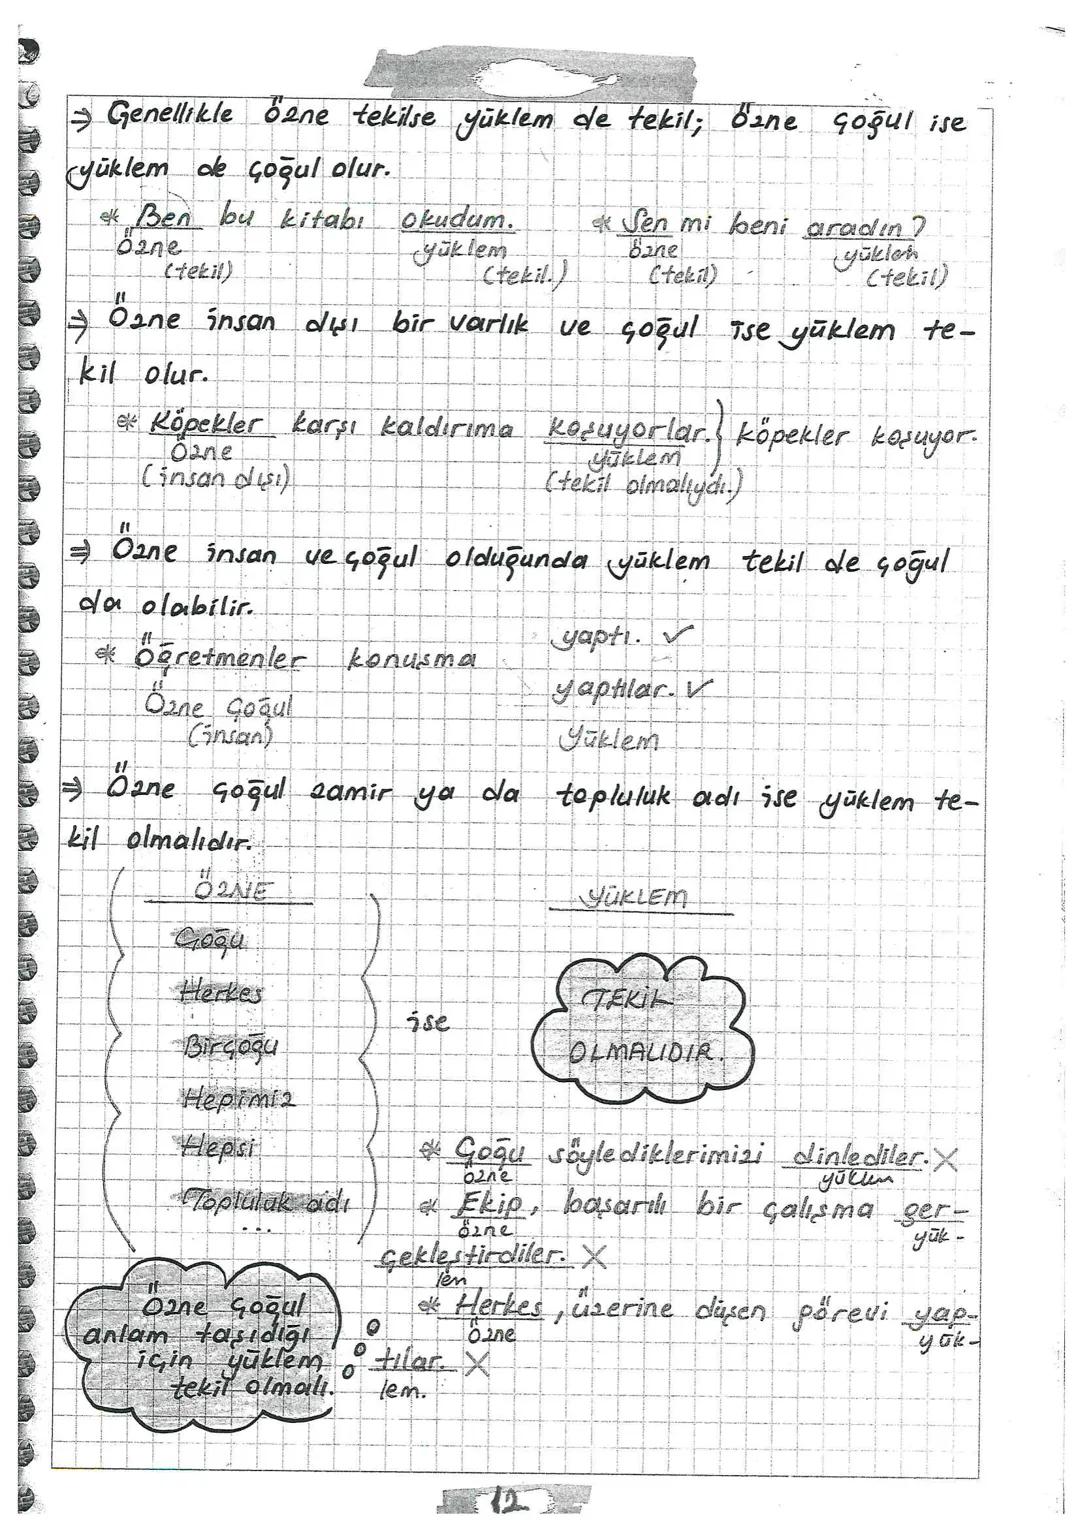 ⇒ Genellikle özne tekilse yüklem de tekil; özne çoğul ise
yüklem de çoğul olur.
* Ben bu kitabı okudum. * Sen mi beni aradın?
özne yüklem özne yüklem
(tekil) (tekil.) (tekil) (tekil)
⇒ Özne insan dışı bir varlık ve çoğul ise yüklem te-
kil olur.
* Köpekler karşı kaldırıma koşuyorlar.} köpekler koşuyor.
özne yüklem
(insan dışı) (tekil olmalıydı.)
⇒ Özne insan ve çoğul olduğunda yüklem tekil de çoğul
da olabilir.
yaptı. ✓
* Öğretmenler konuşma
yaptılar. ✓
Özne çoğul
(insan) Yüklem
⇒ Özne çoğul zamir ya da topluluk adı ise yüklem te-
kil olmalıdır.
ÖZNE YÜKLEM
Çoğu
Herkes
Birçoğu
Hepimiz
Hepsi
Topluluk adı
...
ise
TEKİL
OLMALIDIR.
* Çoğu söylediklerimizi dinlediler. X
özne yüklem
* Ekip, başarılı bir çalışma ger-
özne yük-
çekleştirdiler. X
lem
* Herkes, üzerine düşen görevi yap-
özne yük-
tılar. X
lem.
Özne çoğul
anlam taşıdığı
için yüklem
tekil olmalı.
12